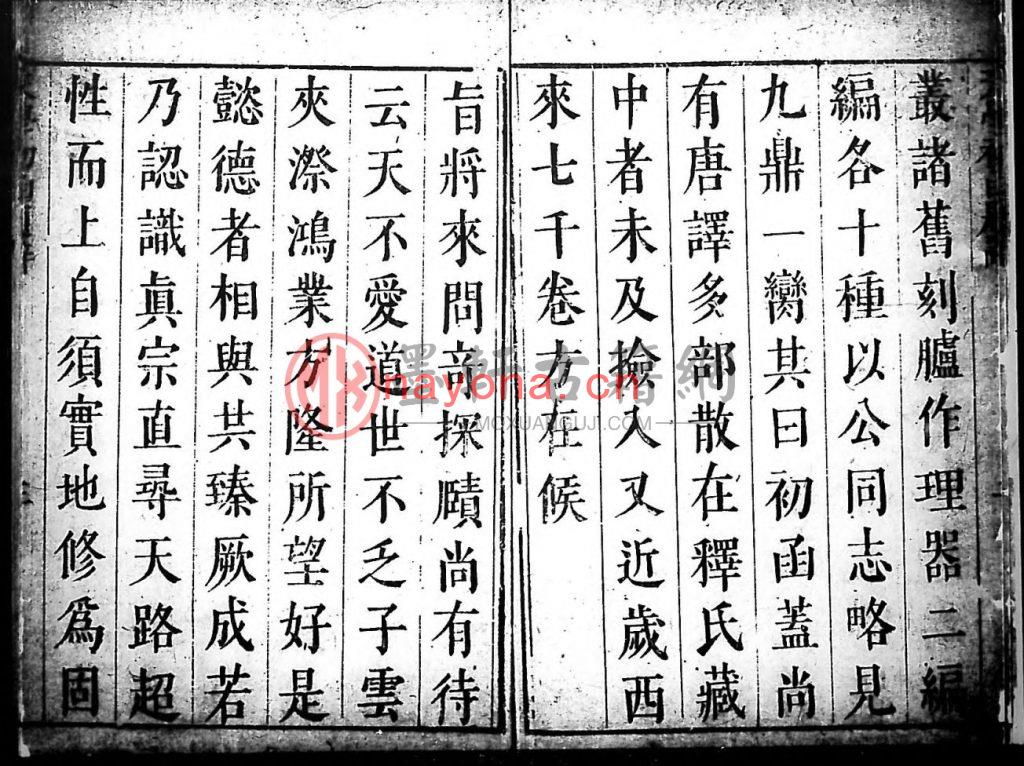 叢諸舊刻臚作理器二編
編各十種以公同志略見
九鼎一臠其曰初函蓋尚
有唐譯多部散在釋氏藏
中者未及撿入又近歲西
來七千卷方在候
旨將來問竒探賾尚有待
云天不愛道世不乏子雲
夾漈鴻業方隆所望好是
懿德者相與共臻厥成若
乃認識眞宗直尋天路超
性而上自須實地修爲固
墨軒古籍網
nayona.cn
MOXUANGUJI.COM